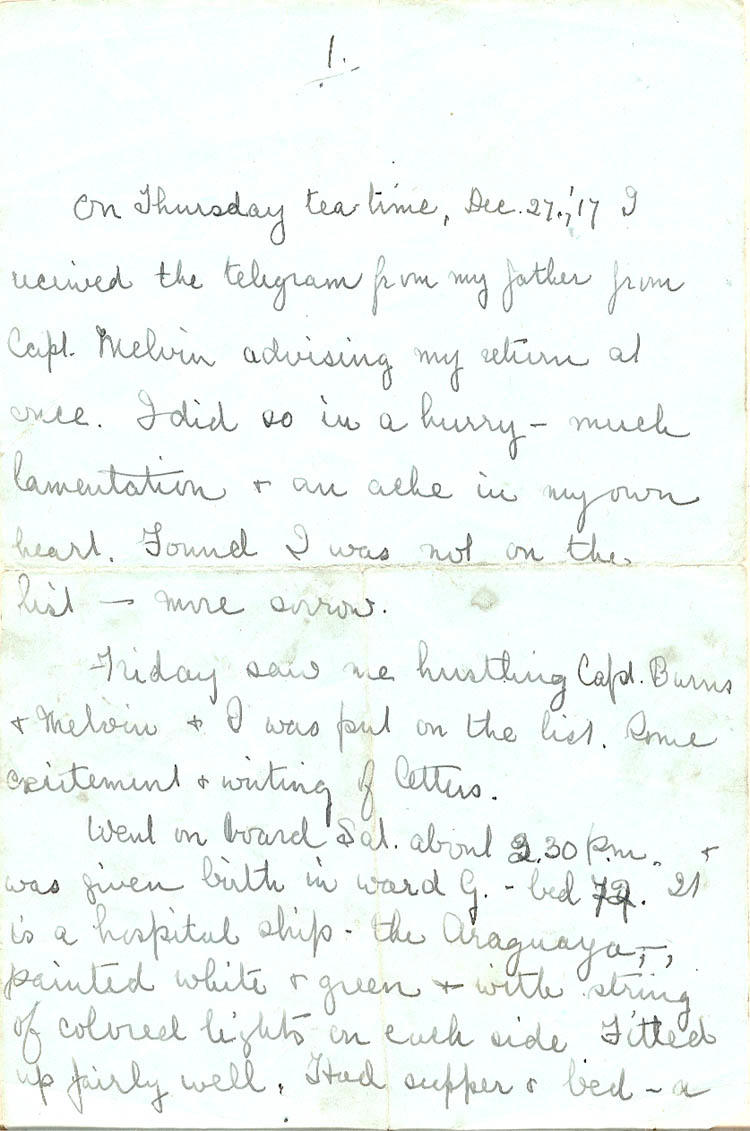 1.
On Thursday tea time, Dec. 27, '17 I
received the telegram from my father from
Capt. Melvin advising my return at
once. I did so in a hurry - much
lamentation & an ache in my own
heart. Found I was not on the
list - more sorrow.
Friday saw me hustling Capt. Burns
& Melvin & I was put on the list. Some
excitement & writing of letters.
Went on board Sat. about 2.30 p.m. &
was given birth in ward G. - bed 72. It
is a hospital ship - the Araguaya,
painted white & green & with string
of colored lights on each side Fitted
up fairly well. Had supper & bed - a